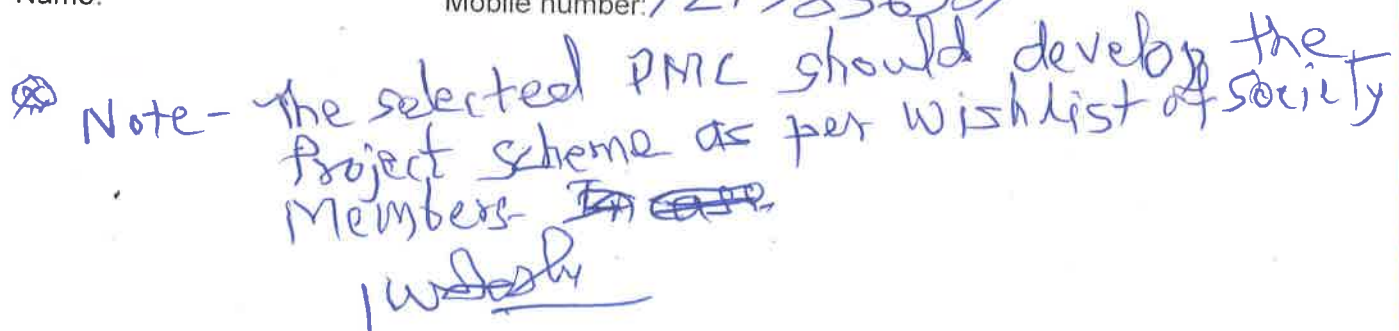 Name:
Mobile number:
Note- The selected PMC should develop the
Project scheme as per wishlist of society
Members-